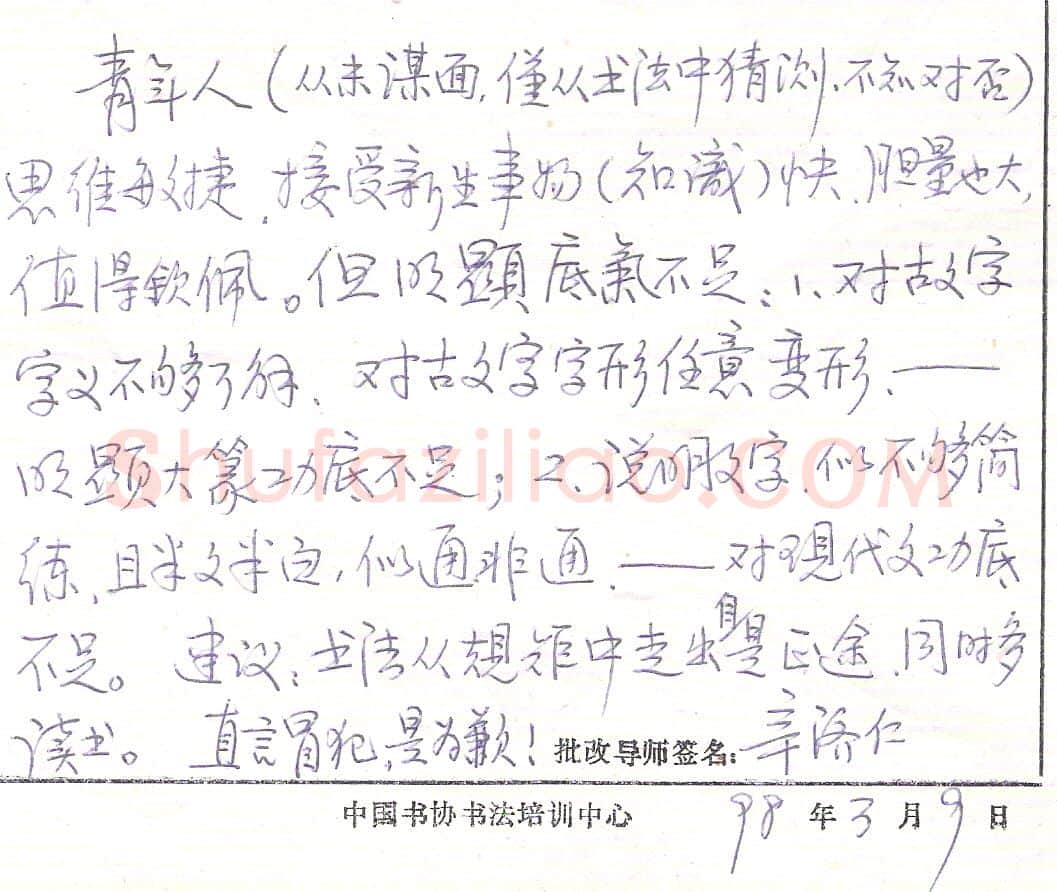 青年人(从未谋面,僅从书法中猜测,不知对否)
思维敏捷,接受新生事物(知識)快、胆量也大,
值得钦佩。但明顯底氣不足:1、对古文字
字义不够了解、对古文字字形任意变形、——
明顯大篆功底不足;2、说明文字、似不够简
练、且半文半白,似通非通、——对现代文功底
不足。 建议:书法从規矩中走出自是正途、同时多
读书。 直言冒犯,是为歉! 批改导师签名:辛济仁
中国书协书法培训中心 98年3月9日
Shufaziliao.COM